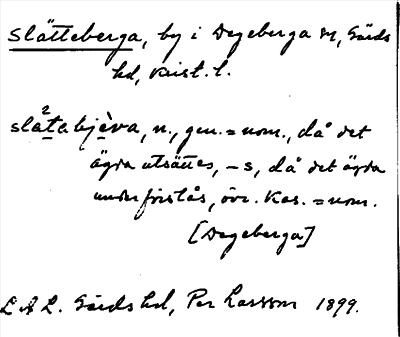 Slätteberga, by i Degeberga sn, Gärds
hd, Krist. l.
slätabjèva, n., gen. = nom., då det
ägda utsättes, -s, då det ägda
underförstås, övr. kas. = nom.
[Degeberga]
LAL. Gärds hd, Per Larsson 1899.